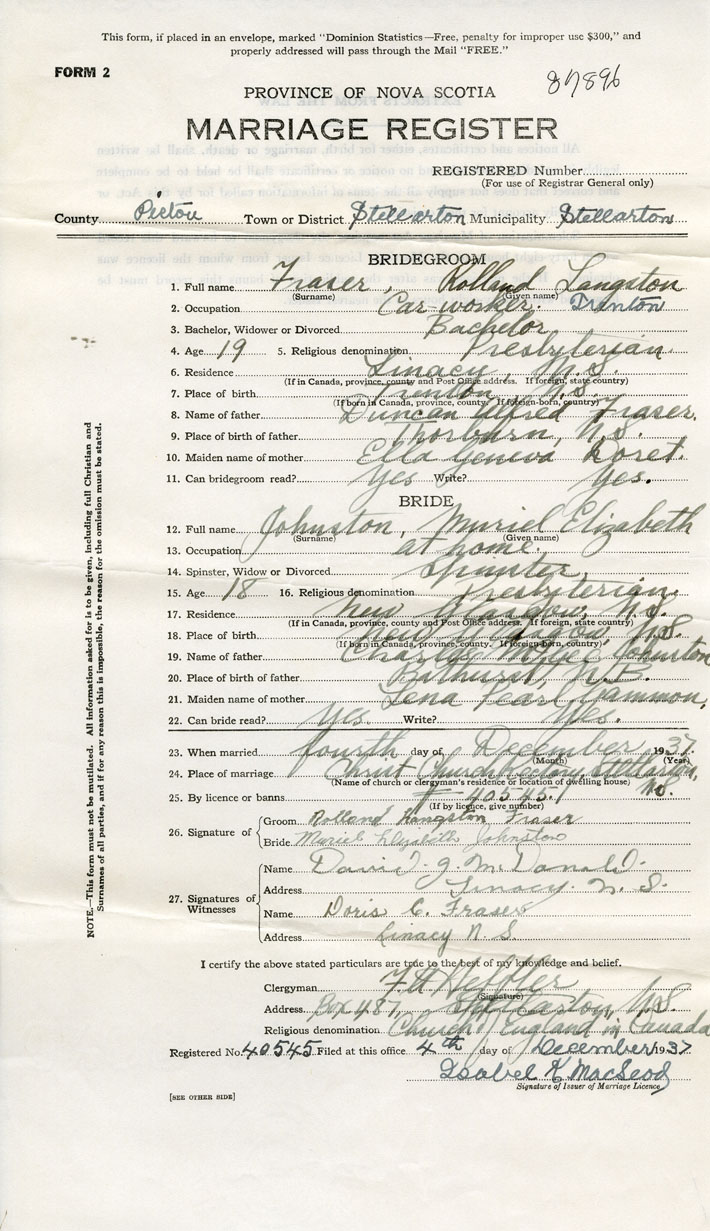 This form, if placed in an envelope, marked "Dominion Statistics—Free, penalty for improper use $300," and
properly addressed will pass through the Mail "FREE."
FORM 2
87896
PROVINCE OF NOVA SCOTIA
MARRIAGE REGISTER
REGISTERED Number
(For use of Registrar General only)
County Pictou Town or District Stellarton Municipality Stellarton
BRIDEGROOM
1. Full name Fraser, Rolland Langston
(Surname) (Given name)
2. Occupation Car-worker. Trenton
3. Bachelor, Widower or Divorced Bachelor
4. Age 19 5. Religious denomination Presbyterian
6. Residence Linacy, N.S.
(If in Canada, province, county and Post Office address. If foreign, state country)
7. Place of birth Trenton, N.S.
(If born in Canada, province, county. If foreign-born, country)
8. Name of father Duncan Alfred Fraser.
9. Place of birth of father Thorburn, N.S.
10. Maiden name of mother Ella Geneva Doret.
11. Can bridegroom read? Yes Write? Yes.
BRIDE
12. Full name Johnston, Muriel Elizabeth
(Surname) (Given name)
13. Occupation at home.
14. Spinster, Widow or Divorced Spinster
15. Age 18 16. Religious denomination Presbyterian
17. Residence New Glasgow, N.S.
(If in Canada, province, county and Post Office address. If foreign, state country)
18. Place of birth New Glasgow, N.S.
(If born in Canada, province, county. If foreign-born, country)
19. Name of father Charles Johnston
20. Place of birth of father Bathurst, N.B.
21. Maiden name of mother Lena Pearl Gammon.
22. Can bride read? Yes. Write? Yes.
23. When married fourth day of December 1937
(Month) (Year)
24. Place of marriage Christ Church Rectory, Stellarton, N.S.
(Name of church or clergyman's residence or location of dwelling house)
25. By licence or banns 40545.
(If by licence, give number)
26. Signature of
Groom Rolland Langston Fraser
Bride Muriel Elizabeth Johnston
27. Signatures of Witnesses
Name David J. McDonald.
Address Linacy. N. S.
Name Doris C. Fraser
Address Linacy N. S.
I certify the above stated particulars are true to the best of my knowledge and belief.
Clergyman
(Signature)
Address Box 487, Stellarton, N.S.
Religious denomination Church of England in Canada
Registered No. 40545 Filed at this office 4th day of December 1937
Isabel K. MacLeod
Signature of Issuer of Marriage Licence
[SEE OTHER SIDE]
NOTE.—This form must not be mutilated. All information asked for is to be given, including full Christian and
Surnames of all parties, and if for any reason this is impossible, the reason for the omission must be stated.